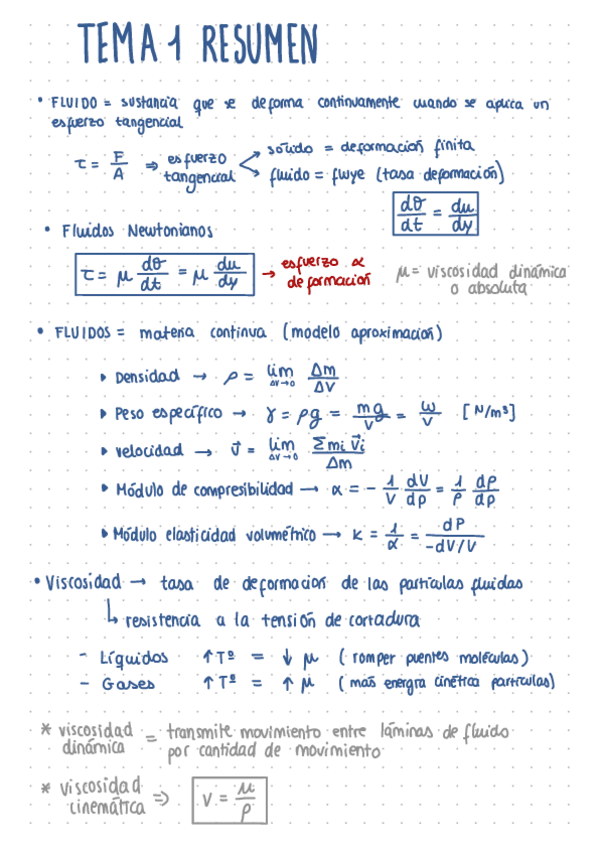 TEMA 1 RESUMEN
• FLUIDO = sustancia que se deforma continuamente cuando se aplica un
esfuerzo tangencial
τ = F/A ⇒ esfuerzo tangencial
sólido = deformación finita
fluido = fluye (tasa deformación)
dθ/dt = du/dy
• Fluidos Newtonianos
τ = μ dθ/dt = μ du/dy → esfuerzo α deformación
μ = viscosidad dinámica
o absoluta
• FLUIDOS = materia continua (modelo aproximación)
▸ Densidad → ρ = lim ΔV→0 Δm/ΔV
▸ Peso específico → γ = ρg = mg/V = w/V [N/m³]
▸ velocidad → v⃗ = lim ΔV→0 Σmi v⃗i/Δm
▸ Módulo de compresibilidad → α = - 1/V dV/dp = 1/ρ dρ/dp
▸ Módulo elasticidad volumétrico → K = 1/α = dP/-dV/V
• Viscosidad → tasa de deformación de las partículas fluidas
↳ resistencia a la tensión de cortadura
- Líquidos ↑Tº = ↓ μ (romper puentes moléculas)
- Gases ↑Tº = ↑ μ (más energía cinética partículas)
* viscosidad dinámica = transmite movimiento entre láminas de fluido
por cantidad de movimiento
* viscosidad cinemática ⇒ ν = μ/ρ